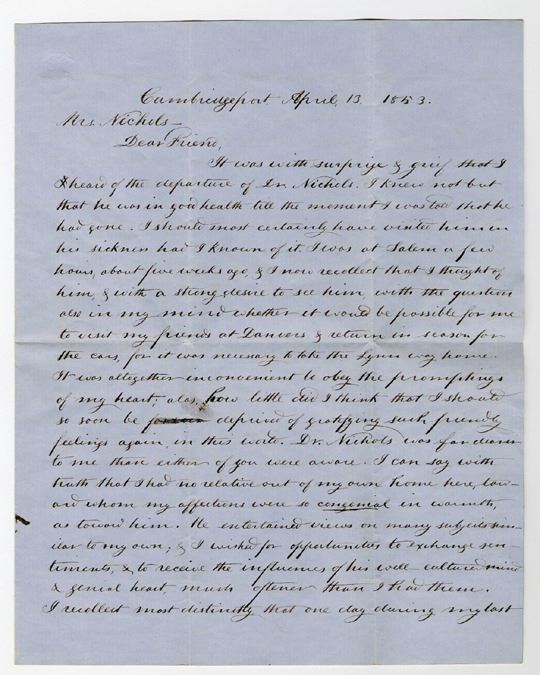 Cambridgeport April, 13, 1853.
Mrs. Nichols—
Dear Friend,
It was with surprize & grief that I
heard of the departure of Dr. Nichols. I knew not but
that he was in good health till the moment I was told that he
had gone. I should most certainly have visited him in
his sickness had I known of it. I was at Salem a few
hours, about five weeks ago, & I now recollect that I thought of
him, & with a strong desire to see him, with the question
also in my mind whether it would be possible for me
to visit my friends at Danvers & return in season for
the cars, for it was necessary to take the Lynn way home.
It was altogether inconvenient to obey the promptings
of my heart, alas, how little did I think that I should
so soon be deprived of gratifying such friendly
feelings again, in this world. Dr. Nichols was far dearer
to me than either of you were aware. I can say with
truth that I had no relative out of my own home here, tow-
ard whom my affections were so congenial in warmth,
as toward him. He entertained views on many subjects sim-
ilar to my own, & I wished for opportunities to exchange sen-
timents, & to receive the influences of his well-cultured mind
& genial heart, much oftener than I had them.
I recollect most distinctly that one day during my last